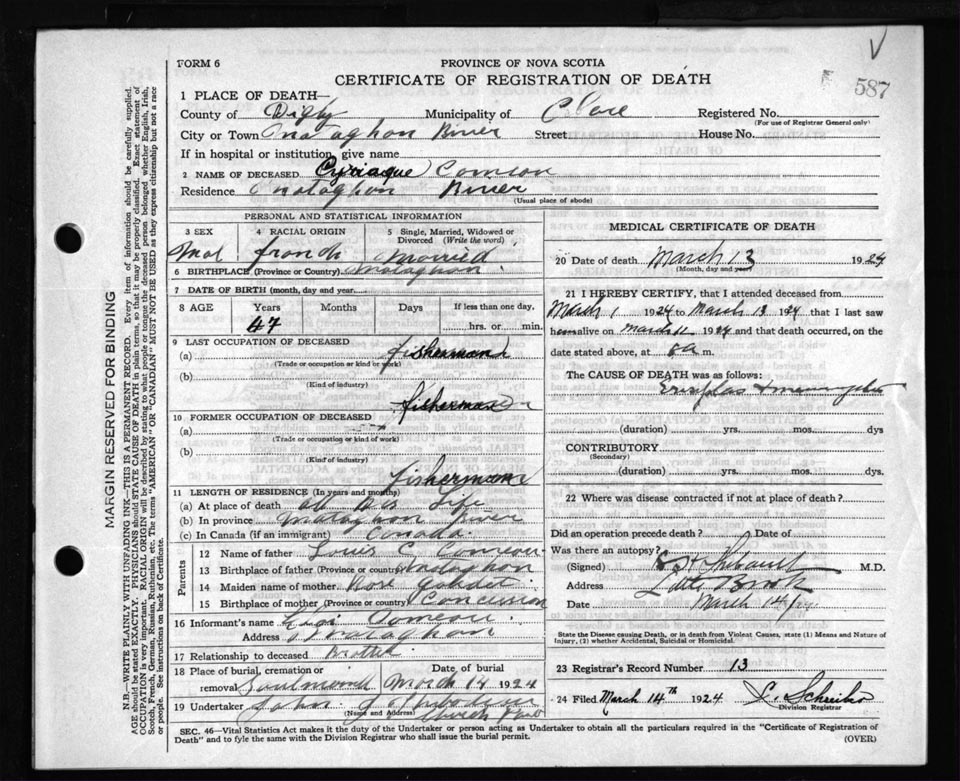 V
587
FORM 6
PROVINCE OF NOVA SCOTIA
CERTIFICATE OF REGISTRATION OF DEATH
1 PLACE OF DEATH—
County of Digby Municipality of Clare Registered No.
(For use of Registrar General only)
City or Town River Street House No.
If in hospital or institution, give name
2 NAME OF DECEASED Cyriaque Comeau
Residence River
(Usual place of abode)
PERSONAL AND STATISTICAL INFORMATION
3 SEX 4 RACIAL ORIGIN 5 Single, Married, Widowed or Divorced (Write the word)
Mal french Married
6 BIRTHPLACE (Province or Country)
7 DATE OF BIRTH (month, day and year)
8 AGE Years Months Days If less than one day,
47 hrs. or min.
9 LAST OCCUPATION OF DECEASED
(a) fisherman
(Trade or occupation or kind of work)
(b)
(Kind of industry)
fisherman
10 FORMER OCCUPATION OF DECEASED
(a)
(Trade or occupation or kind of work)
(b)
(Kind of industry)
fisherman
11 LENGTH OF RESIDENCE (In years and months)
(a) At place of death all his Life
(b) In province River
(c) In Canada (if an immigrant) Canada
Parents
12 Name of father Louis C Comeau
13 Birthplace of father (Province or country)
14 Maiden name of mother Rose
15 Birthplace of mother (Province or country)
16 Informant's name Comeau
Address
17 Relationship to deceased
18 Place of burial, cremation or removal Date of burial March 14 1924
19 Undertaker John
(Name and Address) Church Point
MEDICAL CERTIFICATE OF DEATH
20 Date of death March 13 1924
(Month, day and year)
21 I HEREBY CERTIFY, that I attended deceased from
March 1 1924 to March 13 1924 that I last saw
him alive on March 11 1924 and that death occurred, on the
date stated above, at 8a m.
The CAUSE OF DEATH was as follows:
(duration) yrs. mos. dys
CONTRIBUTORY
(Secondary)
(duration) yrs. mos. dys
22 Where was disease contracted if not at place of death?
Did an operation precede death? Date of
Was there an autopsy?
(Signed) M.D.
Address Little Brook
Date March 14/24
State the Disease causing Death, or in death from Violent Causes, state (1) Means and Nature of
Injury, (2) whether Accidental, Suicidal or Homicidal.
23 Registrar's Record Number 13
24 Filed March 14th 1924
Division Registrar
SEC. 46—Vital Statistics Act makes it the duty of the Undertaker or person acting as Undertaker to obtain all the particulars required in the "Certificate of Registration of
Death" and to fyle the same with the Division Registrar who shall issue the burial permit.
(OVER)
MARGIN RESERVED FOR BINDING
N.B.—WRITE PLAINLY WITH UNFADING INK—THIS IS A PERMANENT RECORD. Every item of information should be carefully supplied.
AGE should be stated EXACTLY. PHYSICIANS should STATE CAUSE OF DEATH in plain terms, so that it may be properly classified. Exact statement of
OCCUPATION is very important. RACIAL ORIGIN will be described by stating to what people or tongue the deceased person belonged whether English, Irish,
Scotch, French, German, Russian, Ruthenian, etc. The terms "AMERICAN" OR "CANADIAN" MUST NOT BE USED as they express citizenship but not a race
or people. See instructions on back of Certificate.